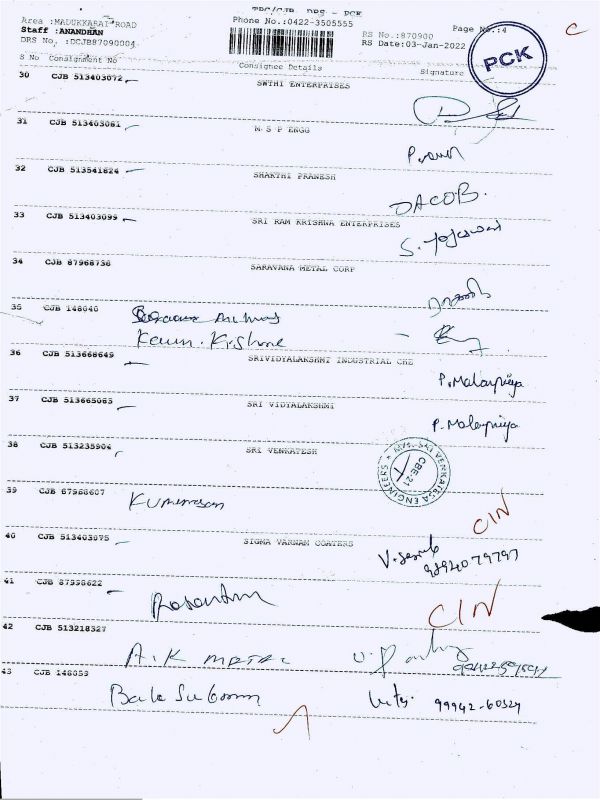 TPC/CJB DRS - PCK
Area :MADUKKARAI ROAD
Phone No.:0422-3505555
Page No.:4
C
Staff :ANANDHAN
RS No.:870900
DRS No. :DCJB87090004
RS Date:03-Jan-2022
PCK
S No Consignment No Consignee Details Signature
30 CJB 513403072 SWTHI ENTERPRISES
31 CJB 513403081 M S P ENGG
32 CJB 513541824 SHAKTHI PRANESH
JACOB.
33 CJB 513403099 SRI RAM KRISHNA ENTERPRISES
34 CJB 87968738 SARAVANA METAL CORP
35 CJB 148040
36 CJB 513668649 SRIVIDYALAKSHMI INDUSTRIAL CHE
P.Malarpriya
37 CJB 513665065 SRI VIDYALAKSHMI
P. Malarpriya
38 CJB 513235904 SRI VENKATESH
M/s. SRI VENKATESA ENGINEERS
CBE-21
39 CJB 87968607
CIN
40 CJB 513403075 SIGMA VARNAM COATERS
41 CJB 87998622
CIN
42 CJB 513218327
A.K METAL
43 CJB 148059
99942-60324